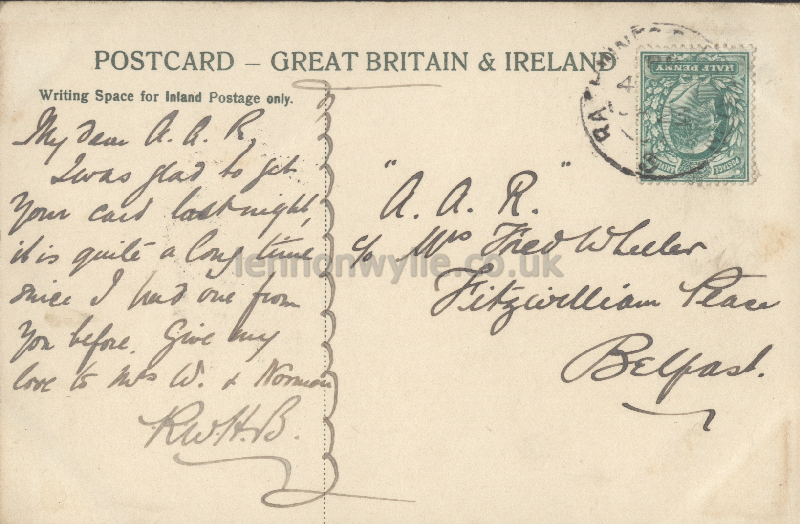 POSTCARD – GREAT BRITAIN & IRELAND
Writing Space for Inland Postage only.
My dear A. A. R.
I was glad to get
Your card last night,
it is quite a long time
since I had one from
You before. Give my
love to Mrs W. & Norman
R.W.H.B.
"A. A. R."
c/o Mrs Fred Wheeler
Fitzwilliam Place
Belfast.
HALF PENNY
POSTAGE
lennonwylie.co.uk